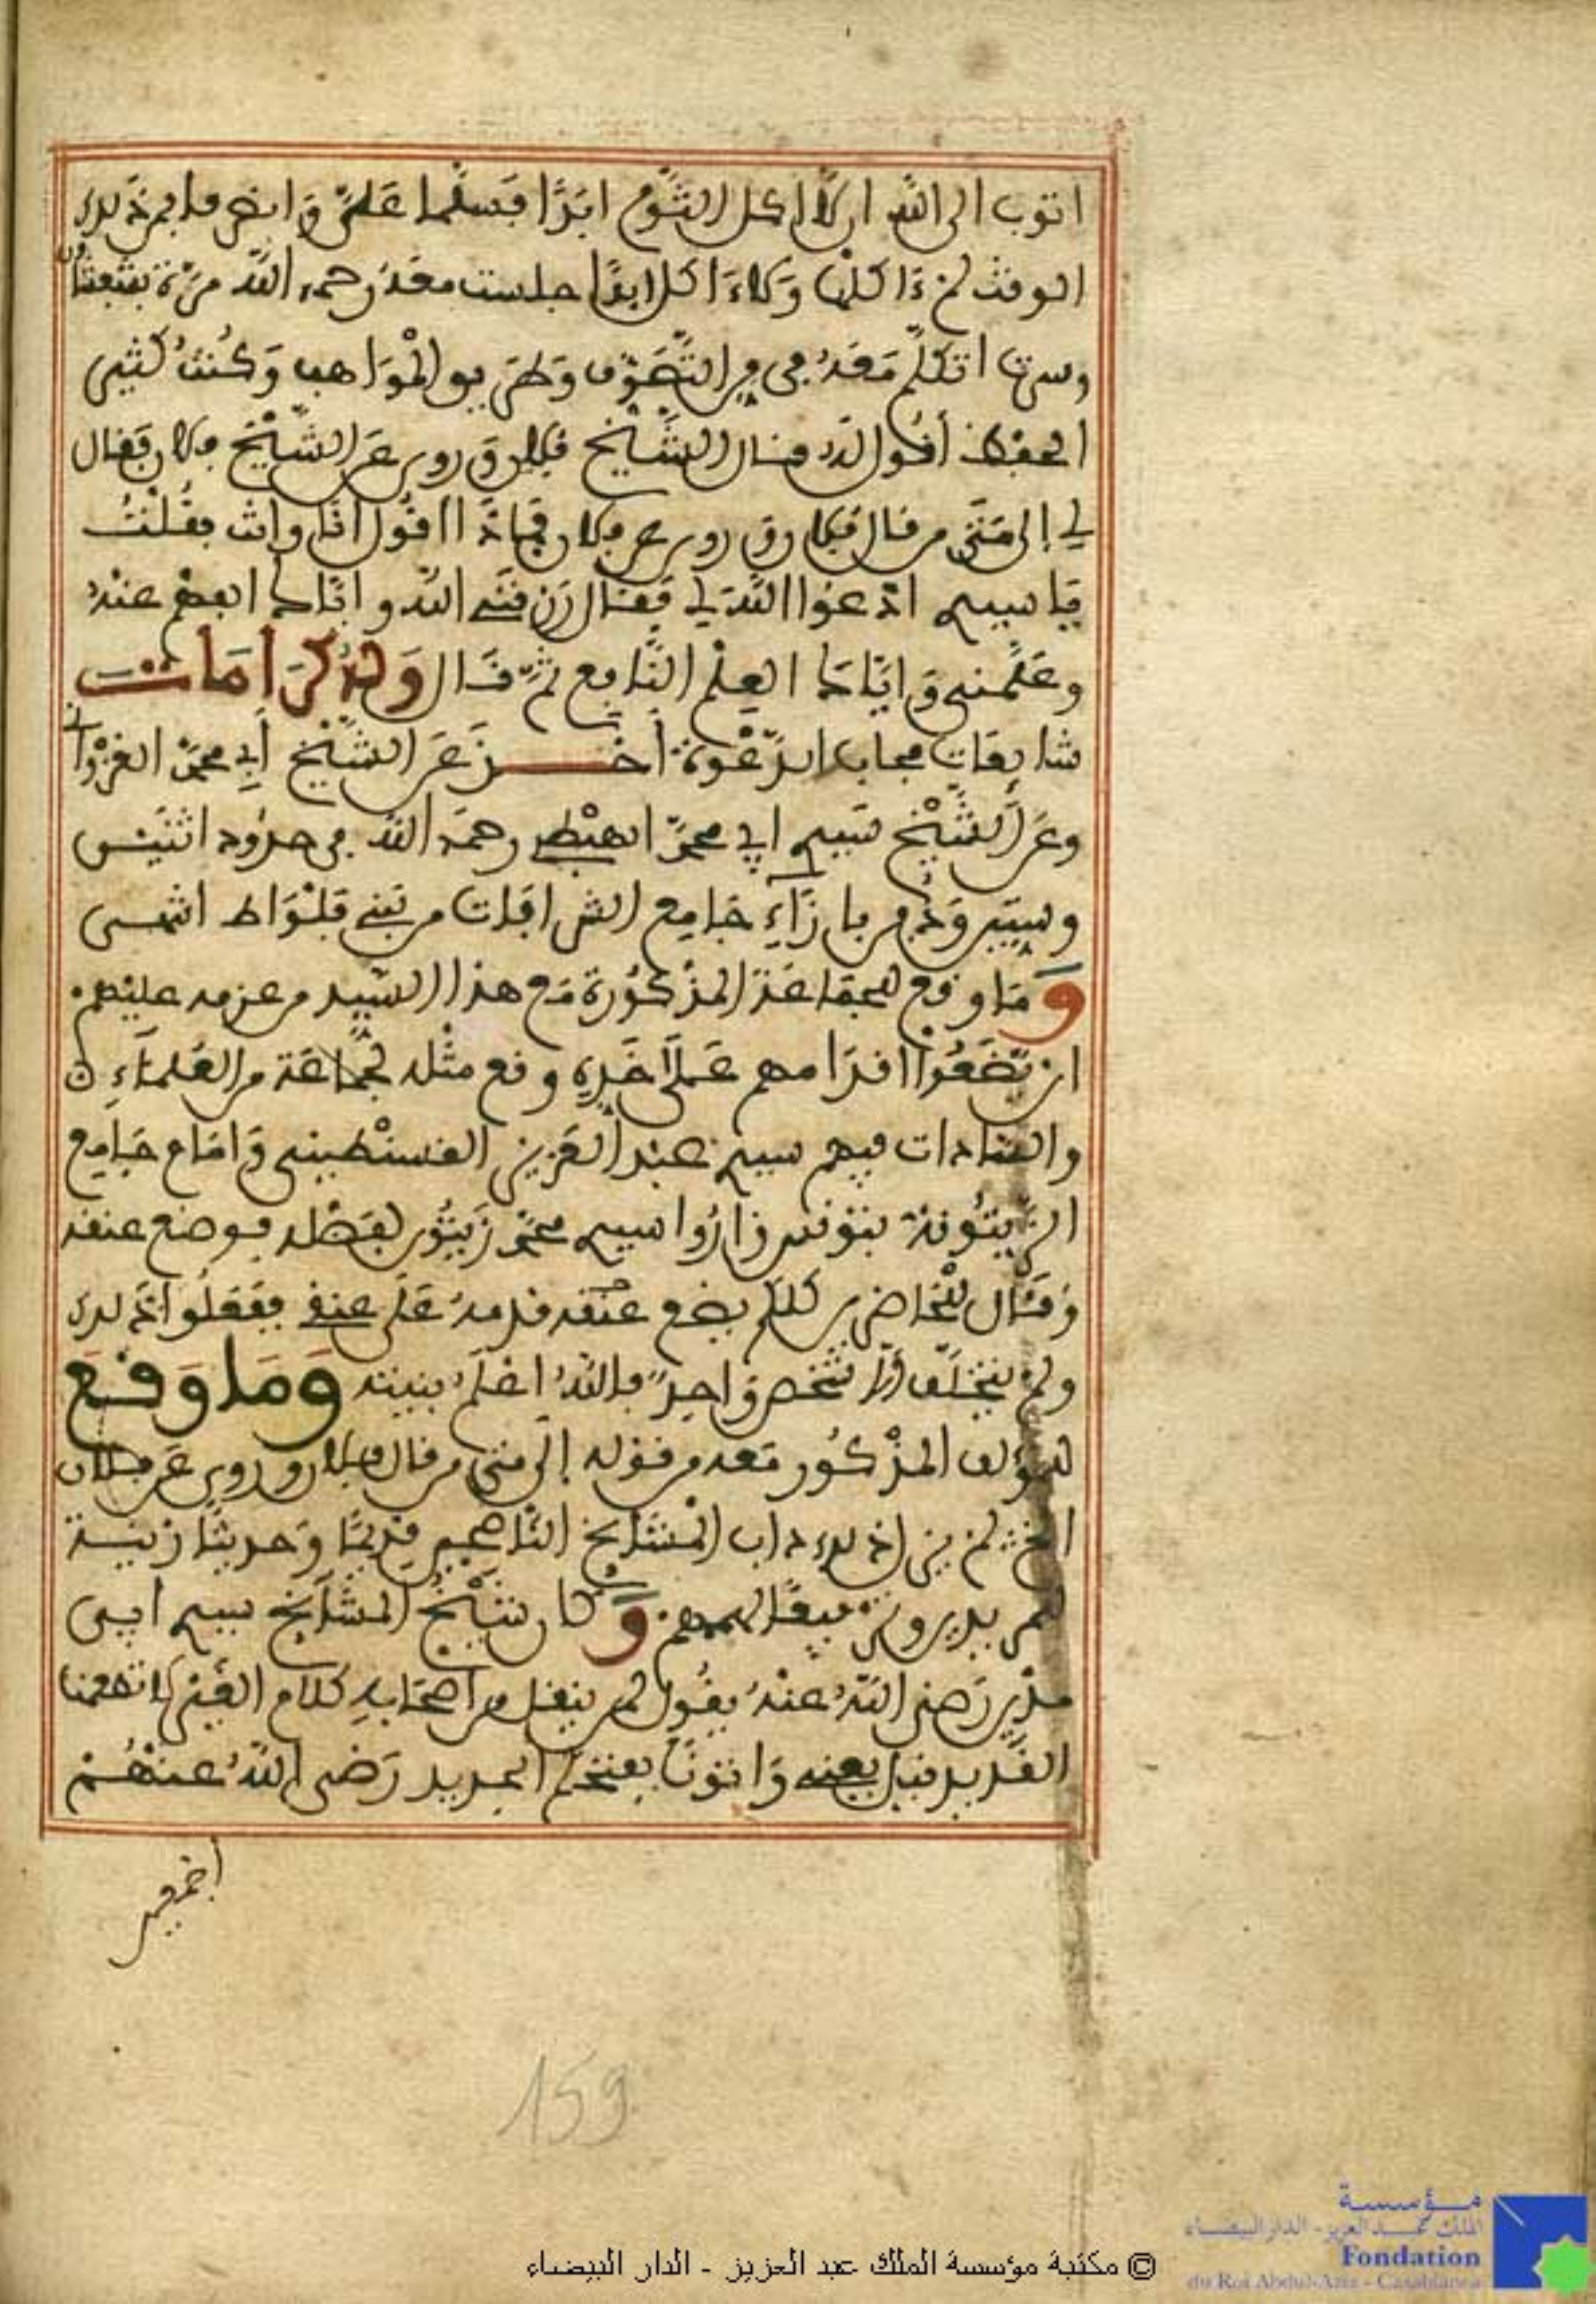 اتوب الى الله ان لا اكل الثوم ابدا فسلما علي وانصرفا فمن ذلك
الوقت لم ءاكلها ولا ءاكل ابدا جلست معه رحمه الله مرة بشفشاون
وسرت اتكلم معه في من التصوف وطريق المواهب وكنت كثير
الحفظ أقول له قال الشيخ فلان وروي عن الشيخ فلان فقال
لي إلى متى من قال فلان وروي عن فلان فماذا اقول انا وانت فقلت
يا سيدي ادعوا الله لي فقال رزقني الله واياك الفهم عنه
وعلمني واياك العلم النافع ثم قال وله كرامات
شايعات مجاب الدعوة أخذ عن الشيخ أبي محمد الغزواني
وعن الشيخ سيدي ابي محمد الهبطي رحمه الله في حدود اثنين
وستين ودفن بازاء جامع الشرافات من بني فلواط انتهى
وما وقع للجماعة المذكورة مع هذا السيد من عزمه عليهم
ان يضعوا اقدامهم على خده وقع مثله لجماعة من العلماء
والسادات فيهم سيدي عبد العزيز القسنطيني وامام جامع
الزيتونة بتونس زاروا سيدي محمد زيتون لفضله فوضع عنقه
وقال للحاضرين كلكم يضع عنقه قدمه على عنقي ففعلوا ذلك
ولم يتخلف الا شخص واحد فالله اعلم بنيته وما وقع
للمؤلف المذكور معه من قوله إلى متى من قال فلان وروي عن فلان
الخ لم يزل ذلك داب المشايخ الناصحين قديما وحديثا زينة
لمن يريدون ترقيقا لهممهم وكان شيخ المشايخ سيدي ابي
مدين رضي الله عنه يقول لمن ينقل من اصحابه كلام الغير لا تطعمنا
القديد قبل يعني واتونا بفتحكم الجديد رضي الله عنهم
اجمعين
159
© مكتبة مؤسسة الملك عبد العزيز - الدار البيضاء
مؤسسة
الملك عبد العزيز - الدار البيضاء
Fondation
du Roi Abdul-Aziz - Casablanca